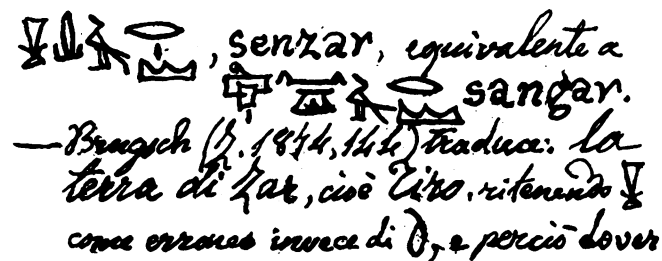 , senzar, equivalente a
sangar.
— Brugsch (Z. 1874, 144) traduce: la
terra di Zar, cioè Tiro, ritenendo
come erroneo invece di , e perciò dover